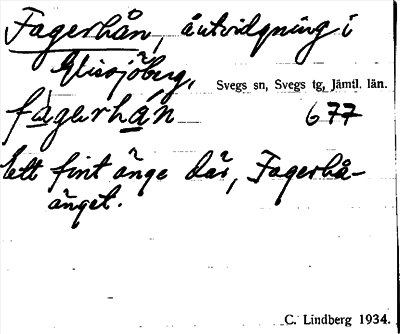 Fagerhån, åutvidgning i
Glissjöberg,
Svegs sn, Svegs tg, Jämtl. län.
fagerhån 677
Ett fint änge där, Fagerhå-
änget.
C. Lindberg 1934.